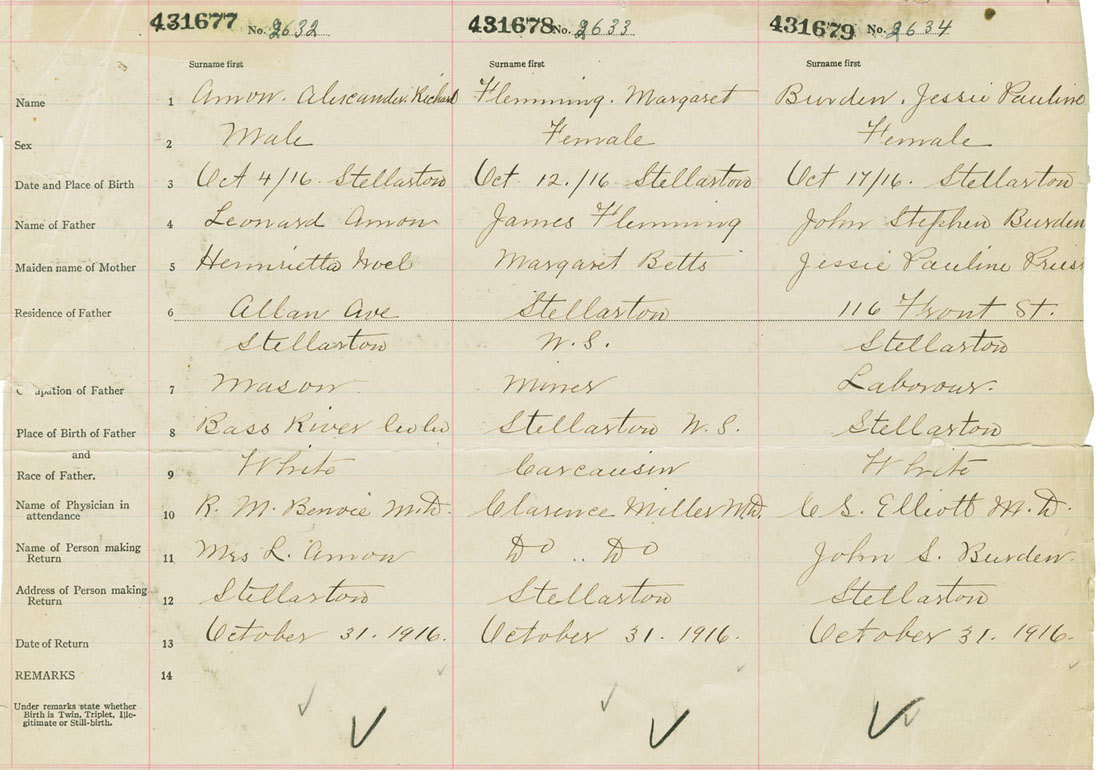 431677 No. 2632 431678 No. 2633 431679 No. 2634
Surname first Surname first Surname first
Name 1 Amon. Alexander. Richard Flemming. Margaret Burden. Jessie Pauline
Sex 2 Male Female Female
Date and Place of Birth 3 Oct 4/16. Stellarton Oct. 12./16 Stellarton Oct 17/16. Stellarton
Name of Father 4 Leonard Amon James Flemming John Stephen Burden
Maiden name of Mother 5 Hennrietta Margaret Betts Jessie Pauline
Residence of Father 6 Allan Ave Stellarton 116 Front St.
Stellarton N.S. Stellarton
pation of Father 7 Mason Miner Laborour.
Place of Birth of Father 8 Bass River Stellarton N.S. Stellarton
and
Race of Father. 9 White Carcausin White
Name of Physician in
attendance 10 R. M. Benvie M.D. Clarence Miller M.D. C S. Elliott M.D.
Name of Person making
Return 11 Mrs L. Amon Do .. Do John S. Burden.
Address of Person making
Return 12 Stellarton Stellarton Stellarton
Date of Return 13 October 31. 1916. October 31. 1916. October 31. 1916.
REMARKS 14
Under remarks state whether
Birth is Twin, Triplet, Ille-
gitimate or Still-birth.